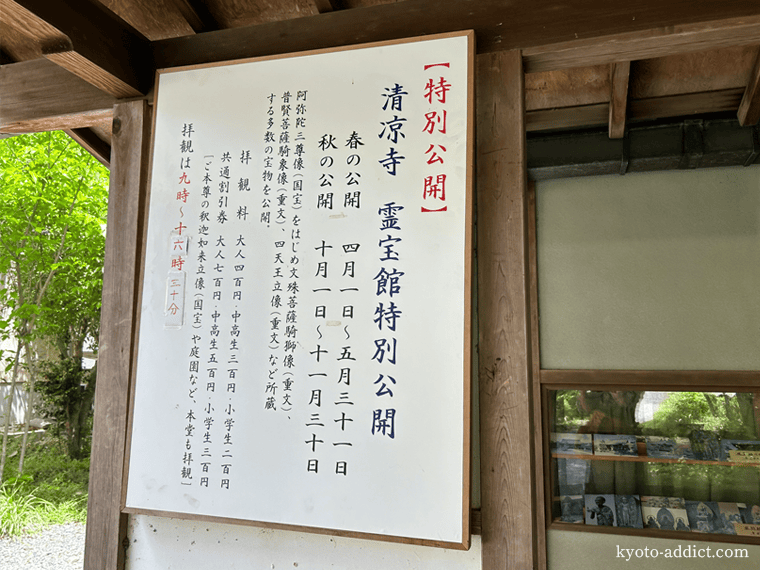 【特別公開】
清凉寺 霊宝館特別公開
春の公開 四月一日～五月三十一日
秋の公開 十月一日～十一月三十日
阿弥陀三尊像(国宝)をはじめ文殊菩薩騎獅像(重文)、
普賢菩薩騎象像(重文)、四天王立像(重文)など所蔵
する多数の宝物を公開。
拝観料 大人四百円・中高生三百円・小学生二百円
共通割引券 大人七百円・中高生五百円・小学生三百円
[ご本尊の釈迦如来立像(国宝)や庭園など、本堂も拝観]
拝観は九時～十六時三十分
kyoto-addict.com